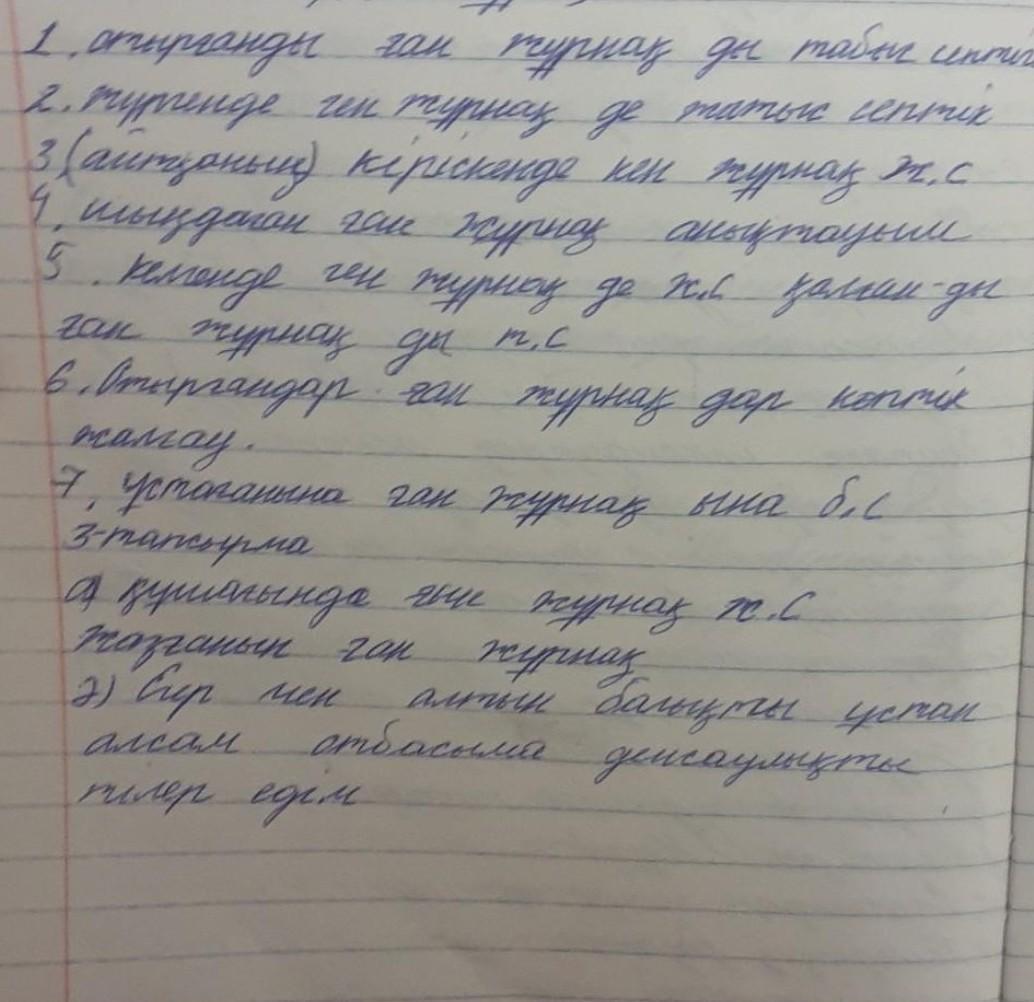 1. отырғанды ған жұрнақ ды табыс септігі
2. жүргенде ген жұрнақ де жатыс септік
3 (айтқаның) кіріскенде кен жұрнақ ж.с
4. шыңдаған ған жұрнақ анықтауыш
5. келгенде ген жұрнақ де ж.с қалған-ды
ған жұрнақ ды т.с
6. Отырғандар ған жұрнақ дар көптік
жалғау.
7. ұстағанына ған жұрнақ ына б.с
3-тапсырма
а) құшағында ғын жұрнақ ж.с
жазғанын ған жұрнақ
ә) Егер мен алтын балықты ұстап
алсам отбасыма денсаулықты
тілер едім